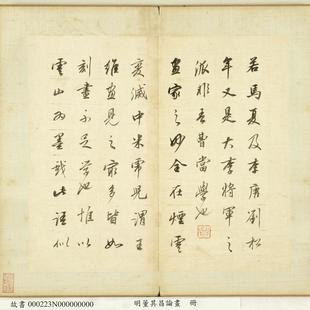 若馬夏及李唐劉松
年又是大李將軍之
派非吾曹當學也
畫家之妙全在煙雲
變滅中米虎兒謂王
維畫見之最多皆如
刻畫不足學也惟以
雲山為墨戲此語似
故書 000223N000000000 明董其昌論畫 冊